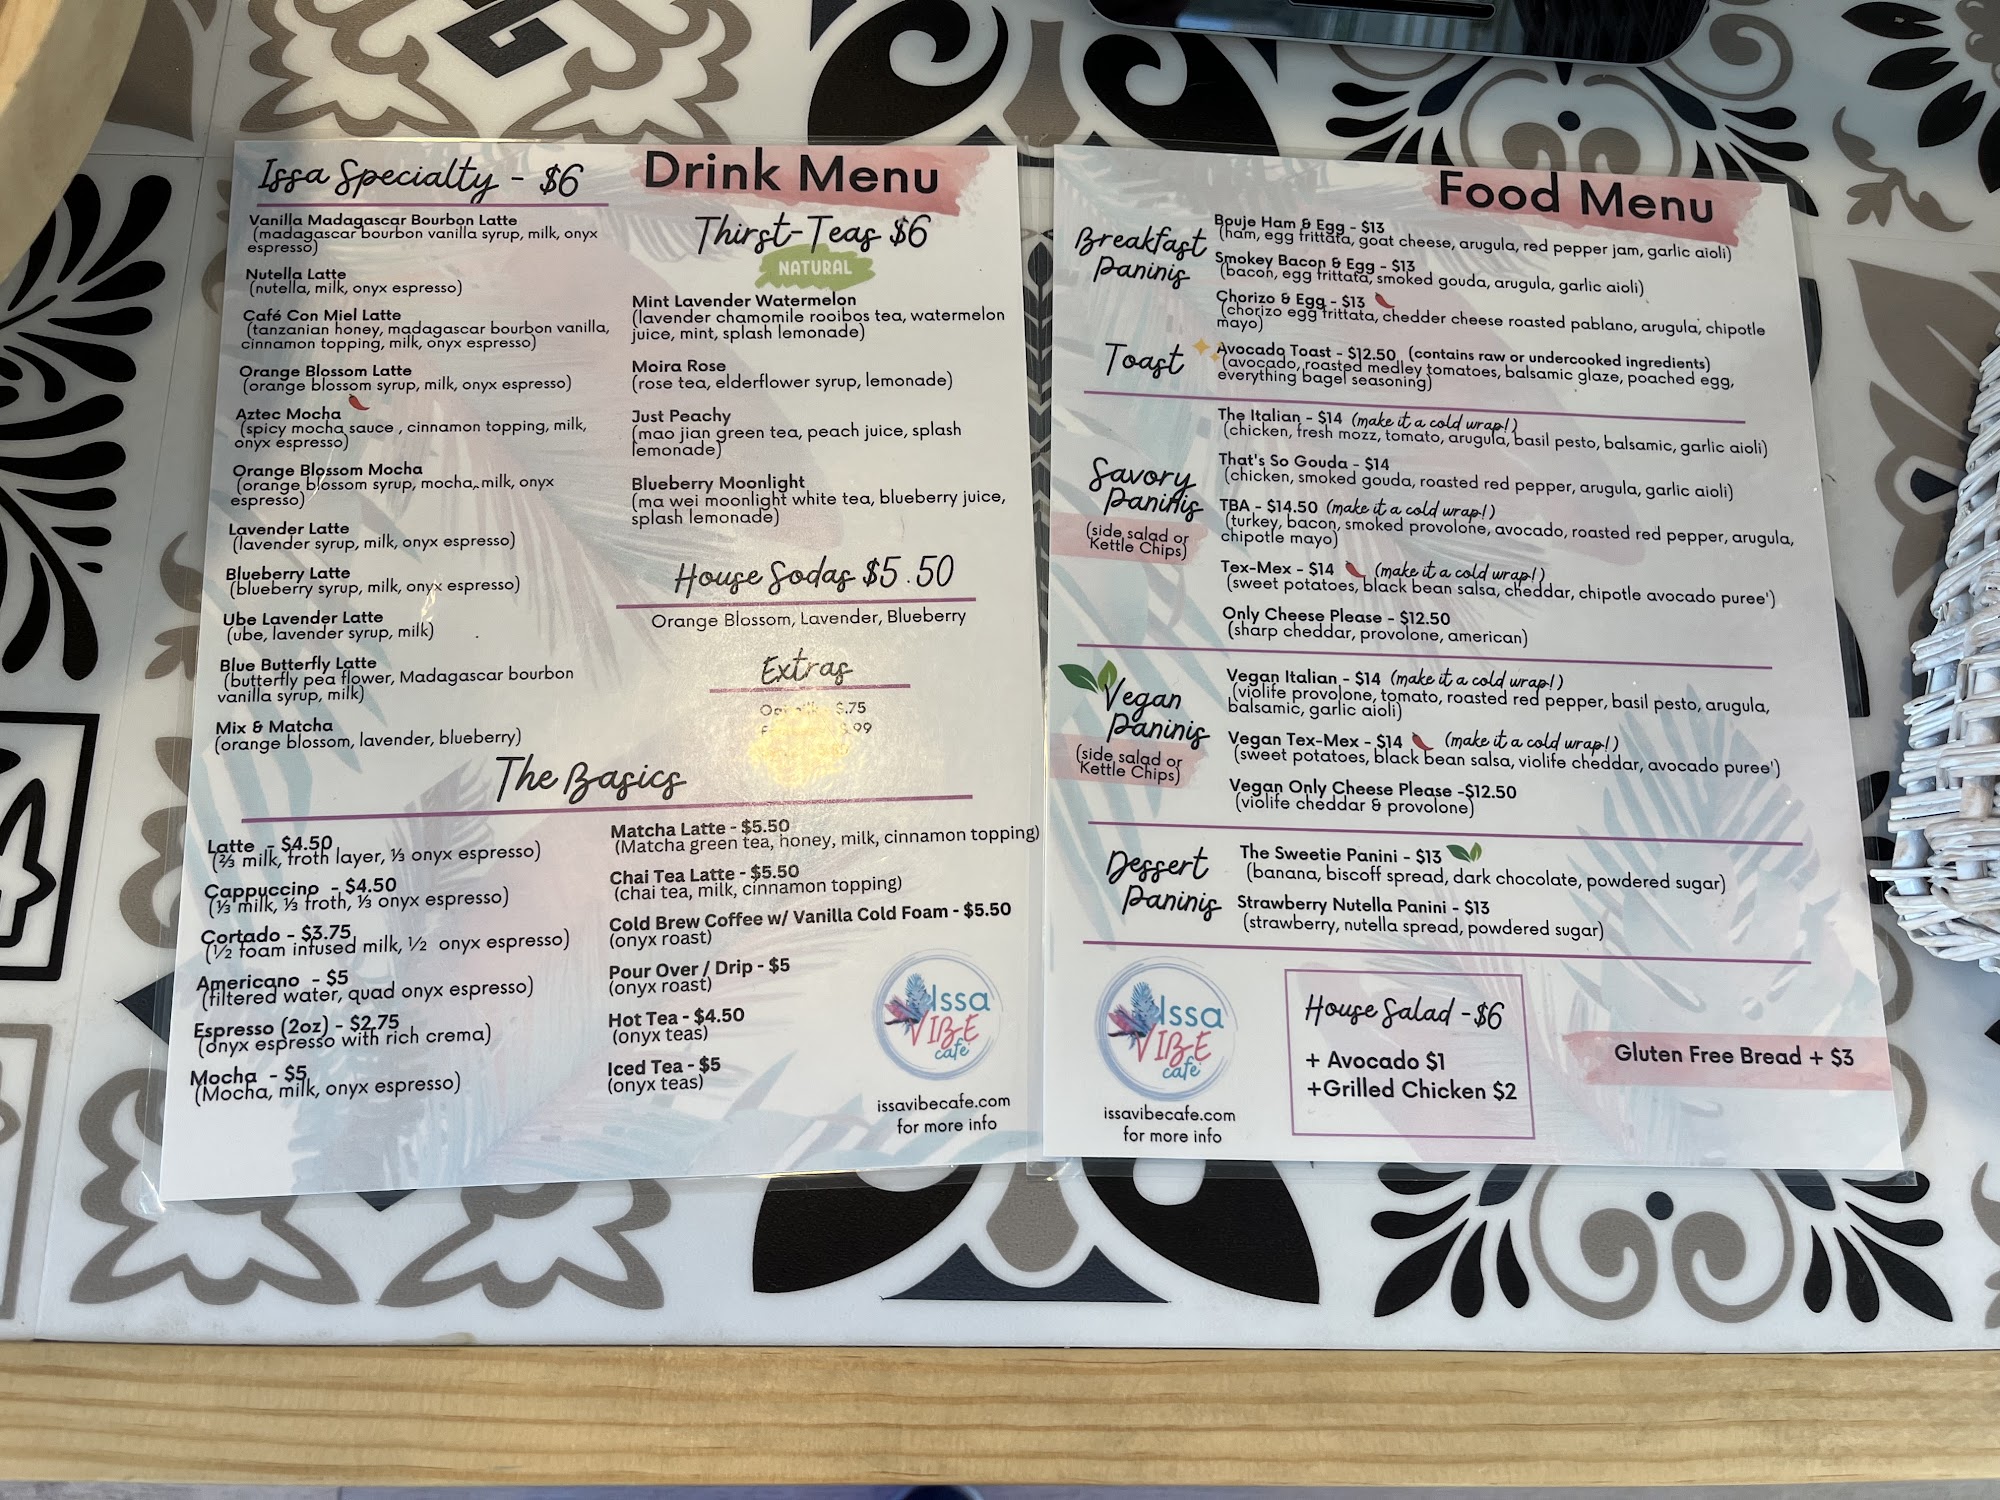 Issa Specialty - $6
Vanilla Madagascar Bourbon Latte
(madagascar bourbon vanilla syrup, milk, onyx
espresso)
Nutella Latte
(nutella, milk, onyx espresso)
Café Con Miel Latte
(tanzanian honey, madagascar bourbon vanilla,
cinnamon topping, milk, onyx espresso)
Orange Blossom Latte
(orange blossom syrup, milk, onyx espresso)
Aztec Mocha
(spicy mocha sauce , cinnamon topping, milk,
onyx espresso)
Orange Blossom Mocha
(orange blossom syrup, mocha, milk, onyx
espresso)
Lavender Latte
(lavender syrup, milk, onyx espresso)
Blueberry Latte
(blueberry syrup, milk, onyx espresso)
Ube Lavender Latte
(ube, lavender syrup, milk)
Blue Butterfly Latte
(butterfly pea flower, Madagascar bourbon
vanilla syrup, milk)
Mix & Matcha
(orange blossom, lavender, blueberry)
Drink Menu
Thirst-Teas $6
NATURAL
Mint Lavender Watermelon
(lavender chamomile rooibos tea, watermelon
juice, mint, splash lemonade)
Moira Rose
(rose tea, elderflower syrup, lemonade)
Just Peachy
(mao jian green tea, peach juice, splash
lemonade)
Blueberry Moonlight
(ma wei moonlight white tea, blueberry juice,
splash lemonade)
House Sodas $5.50
Orange Blossom, Lavender, Blueberry
Extras
$.75
.99
The Basics
Latte - $4.50
(⅔ milk, froth layer, ⅓ onyx espresso)
Cappuccino - $4.50
(⅓ milk, ⅓ froth, ⅓ onyx espresso)
Cortado - $3.75
(1/2 foam infused milk, 1/2 onyx espresso)
Americano - $5
(filtered water, quad onyx espresso)
Espresso (2oz) - $2.75
(onyx espresso with rich crema)
Mocha - $5
(Mocha, milk, onyx espresso)
Matcha Latte - $5.50
(Matcha green tea, honey, milk, cinnamon topping)
Chai Tea Latte - $5.50
(chai tea, milk, cinnamon topping)
Cold Brew Coffee w/ Vanilla Cold Foam - $5.50
(onyx roast)
Pour Over / Drip - $5
(onyx roast)
Hot Tea - $4.50
(onyx teas)
Iced Tea - $5
(onyx teas)
Issa
VIBE
cafe
issavibecafe.com
for more info
Food Menu
Breakfast
Paninis
Bouje Ham & Egg - $13
(ham, egg frittata, goat cheese, arugula, red pepper jam, garlic aioli)
Smokey Bacon & Egg - $13
(bacon, egg frittata, smoked gouda, arugula, garlic aioli)
Chorizo & Egg - $13
(chorizo egg frittata, chedder cheese roasted pablano, arugula, chipotle
mayo)
Toast
Avocado Toast - $12.50 (contains raw or undercooked ingredients)
(avocado, roasted medley tomatoes, balsamic glaze, poached egg,
everything bagel seasoning)
Savory
Paninis
(side salad or
Kettle Chips)
The Italian - $14 (make it a cold wrap!)
(chicken, fresh mozz, tomato, arugula, basil pesto, balsamic, garlic aioli)
That's So Gouda - $14
(chicken, smoked gouda, roasted red pepper, arugula, garlic aioli)
TBA - $14.50 (make it a cold wrap!)
(turkey, bacon, smoked provolone, avocado, roasted red pepper, arugula,
chipotle mayo)
Tex-Mex - $14 (make it a cold wrap!)
(sweet potatoes, black bean salsa, cheddar, chipotle avocado puree')
Only Cheese Please - $12.50
(sharp cheddar, provolone, american)
Vegan
Paninis
(side salad or
Kettle Chips)
Vegan Italian - $14 (make it a cold wrap!)
(violife provolone, tomato, roasted red pepper, basil pesto, arugula,
balsamic, garlic aioli)
Vegan Tex-Mex - $14 (make it a cold wrap!)
(sweet potatoes, black bean salsa, violife cheddar, avocado puree')
Vegan Only Cheese Please -$12.50
(violife cheddar & provolone)
Dessert
Paninis
The Sweetie Panini - $13
(banana, biscoff spread, dark chocolate, powdered sugar)
Strawberry Nutella Panini - $13
(strawberry, nutella spread, powdered sugar)
Issa
VIBE
cafe
issavibecafe.com
for more info
House Salad - $6
+ Avocado $1
+Grilled Chicken $2
Gluten Free Bread + $3